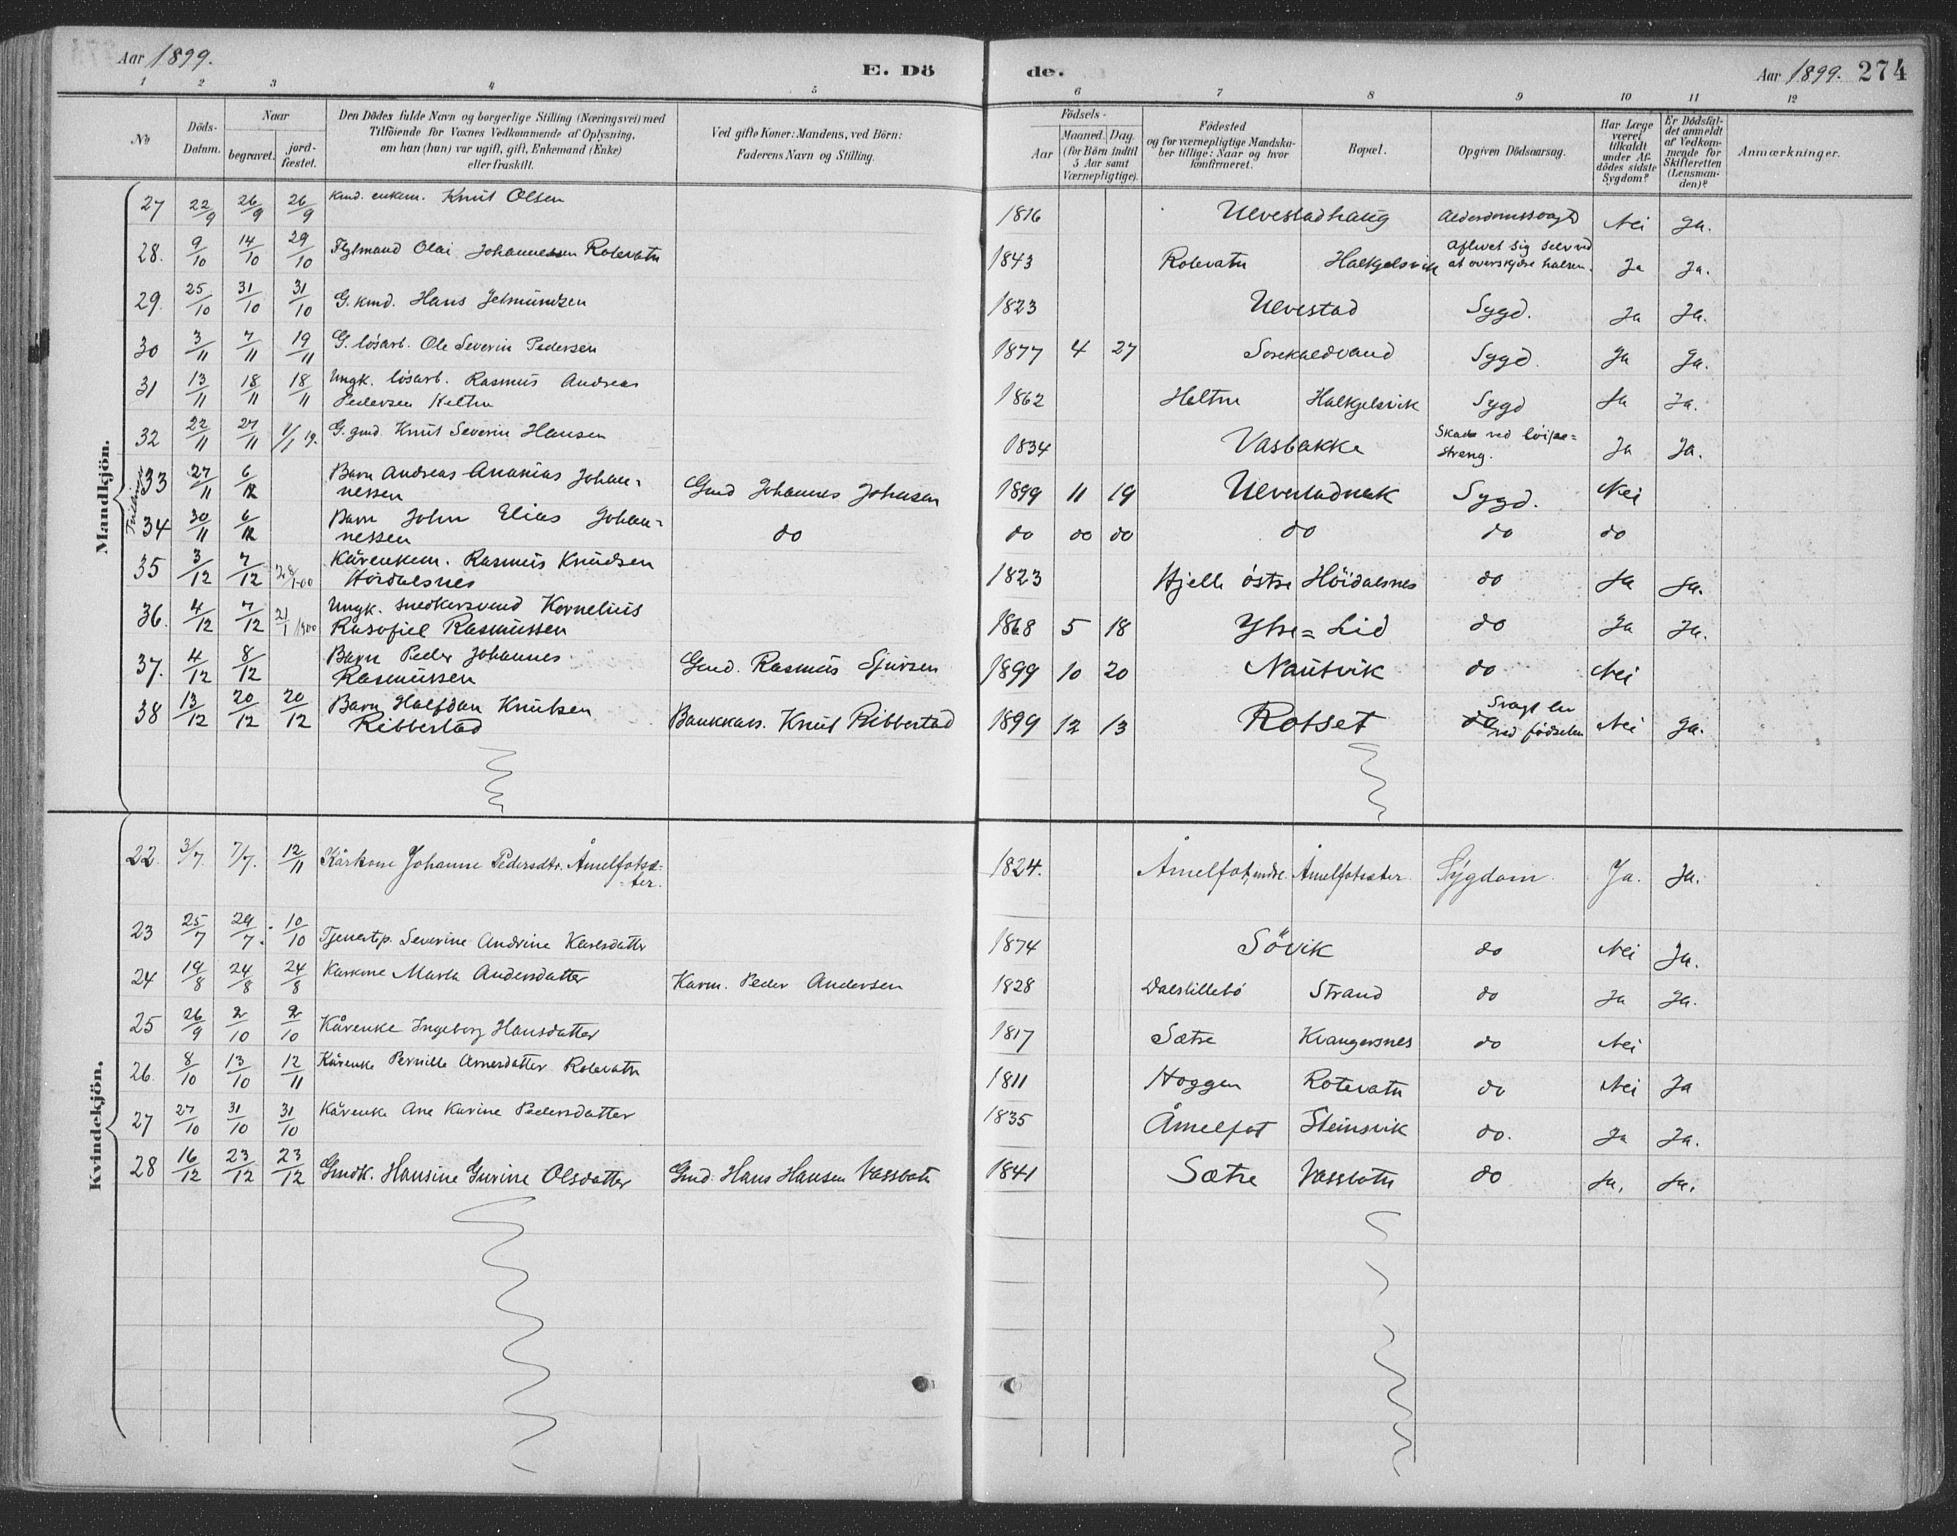 Aar 1899.
E. Dö
de.
Aar 1899. 274
1 2 3 4 5 6 7 8 9 10 11 12
No
Döds-
Datum.
Naar
begravet.
jord-
fæstet.
Den Dödes fulde Navn og borgerlige Stilling (Næringsvei) med
Tilföiende for Voxnes Vedkommende af Oplysning,
om han (hun) var ugift, gift, Enkemand (Enke)
eller fraskilt.
Ved gifte Koner: Mandens, ved Börn:
Faderens Navn og Stilling.
Födsels-
Aar
Maaned. Dag.
(for Börn indtil
5 Aar samt
Værnepligtige).
Födested
og for værnepligtige Mandska-
ber tillige: Naar og hvor
konfirmeret.
Bopæl.
Opgiven Dödsaarsag.
Har Læge
været
tilkaldt
under Af-
dödes sidste
Sygdom?
Er Dödsfal-
det anmeldt
af Vedkom-
mende for
Skifteretten
(Lensman-
den)?
Anmærkninger.
Mandkjön.
27 22/9 26/9 26/9 Kmd. enkem. Knut Olsen 1816 Ulvestadhaug Alderdomssvagh Nei Ja.
28. 9/10 14/10 29/10 Olai Johannessen Rotevatn 1843 Rotevatn Halkjelsvik Aflivet sig selv ved
at overskjære halsen. Ja Ja.
29. 25/10 31/10 31/10 G. kmd. Hans Jetmundsen 1823 Ulvestad Sygd. Ja Ja.
30 3/11 7/11 19/11 G. lösarb. Ole Severin Pedersen 1877 4 27 Sygd. Ja Ja.
31 13/11 18/11 18/11 Ungk. lösarb. Rasmus Andreas
Pedersen Heltne 1862 Heltne Halkjelsvik Sygd Ja Ja.
32 22/11 27/11 G. gmd. Knut Severin Hansen 1834 Vasbakke Skade ved löipe=
streng. Ja Ja.
33 27/11 6/12 Barn Andreas Ananias Johan-
nessen Gmd Johannes Johnsen 1899 11 19 Sygd. Nei
34 30/11 6/12 Barn John Elias Johan-
nessen do do do do do do do
35 3/12 7/12 Kårenkem. Rasmus Knudsen
Höidalsnes 1823 Hjelle östre Höidalsnes do Ja Ja.
36. 4/12 7/12 21/1 1900 Ungk. snedkersvend Kornelius
Rasmussen 1868 5 18 Ytre=Lid do Ja Ja.
37. 4/12 8/12 Barn Peder Johannes
Rasmussen Gmd. Rasmus Sjursen 1899 10 20 Nautvik do Nei
38 13/12 20/12 20/12 Barn Halfdan Knutsen
Ribbestad Bankkas. Knut Ribbestad 1899 12 13 Rotset Svagt
ved födselen Nei Ja.
Kvindekjön.
22. 3/7. 7/7. 12/11 Kårkone Johanne Pedersdtr. Åmelfotsæ-
-ter. 1824. Åmelfot, indre Åmelfotsæter Sygdom Ja. Ja.
23 25/7 29/7. 10/10 Tjenestp. Severine Andrine Karesdatter 1874 Sövik do Nei Ja.
24 19/8 24/8 24/8 Karkone Marta Andersdatter Karm. Peder Andersen 1828 Dalslillebö Strand do Ja Ja.
25 26/9 2/10 2/10 Kårenke Ingeborg Hansdatter 1817 Sætre Kvangersnes do Nei
26. 8/10 13/10 12/11 Kårenke Pernille Arnesdatter Rotevatn 1811 Hoggen Rotevatn do Nei Ja
27 27/10 31/10 31/10 Kårenke Ane Karine Pedersdatter 1835 Åmelfot Steinsvik do. Ja Ja.
28 16/12 23/12 23/12 Gmdk. Hansine Gurine Olsdatter Gmd. Hans Hansen Vassbotn 1841 Sætre Vassbotn do Ja. Ja.